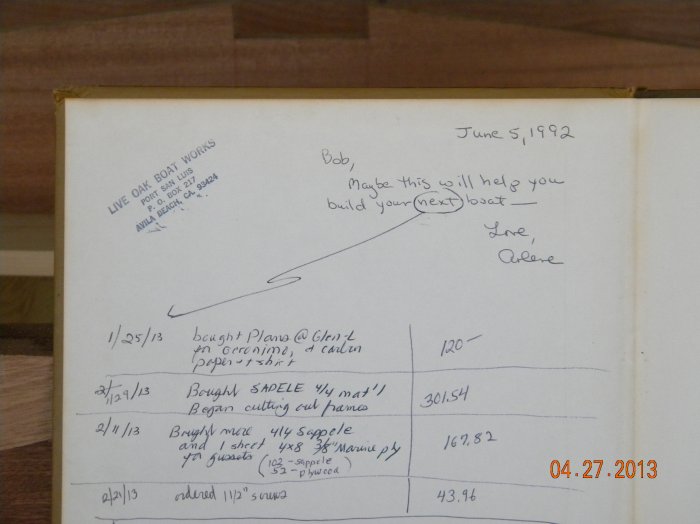 June 5, 1992
LIVE OAK BOAT WORKS
PORT SAN LUIS
P. O. BOX 217
AVILA BEACH, CA. 93424
Bob,
Maybe this will help you
build your next boat —
Love,
Arlene
1/25/13 bought Plans @ Glen-L 120 —
for Geronimo, + carbon
paper + t shirt
1/29/13 Bought SAPELE 4/4 mat'l 301.54
Began cutting out frames
2/11/13 Bought more 4/4 Sappele 167.82
and 1 sheet 4x8 3/8" Marine ply
for gussets (102 - sappele
52 - plywood)
2/21/13 ordered 1 1/2" screws 43.96
04.27.2013